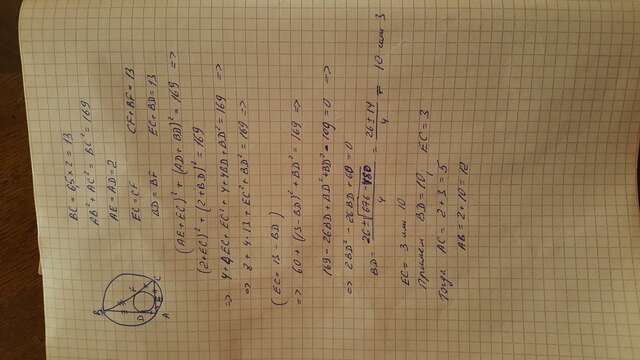 BC = 6,5 × 2 = 13
AB² + AC² = BC² = 169
AE = AD = 2
EC = CF CF + BF = 13
BD = BF EC + BD = 13
(AE + EC)² + (AD + BD)² = 169 =>
(2 + EC)² + (2 + BD)² = 169
=> 4 + 4EC + EC² + 4 + 4BD + BD² = 169 =>
=> 8 + 4·13 + EC² + BD² = 169 =>
(EC = 13 - BD)
=> 60 + (13 - BD)² + BD² = 169 =>
169 - 26BD + BD² + BD² - 109 = 0 =>
=> 2BD² - 26BD + 60 = 0
BD = 26 ± √676 - 480 / 4 = 26 ± 14 / 4 = 10 или 3
EC = 3 или 10
Примем BD = 10, EC = 3
Тогда AC = 2 + 3 = 5
AB = 2 + 10 = 12
B
F
D
C
E
A